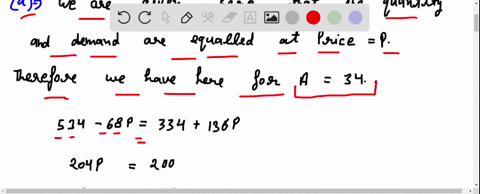 (a)⇒ we are that the quantity
and demand are equalled at Price = P.
Therefore we have here for A = 34.
534 - 68P = 334 + 136P
204P = 200